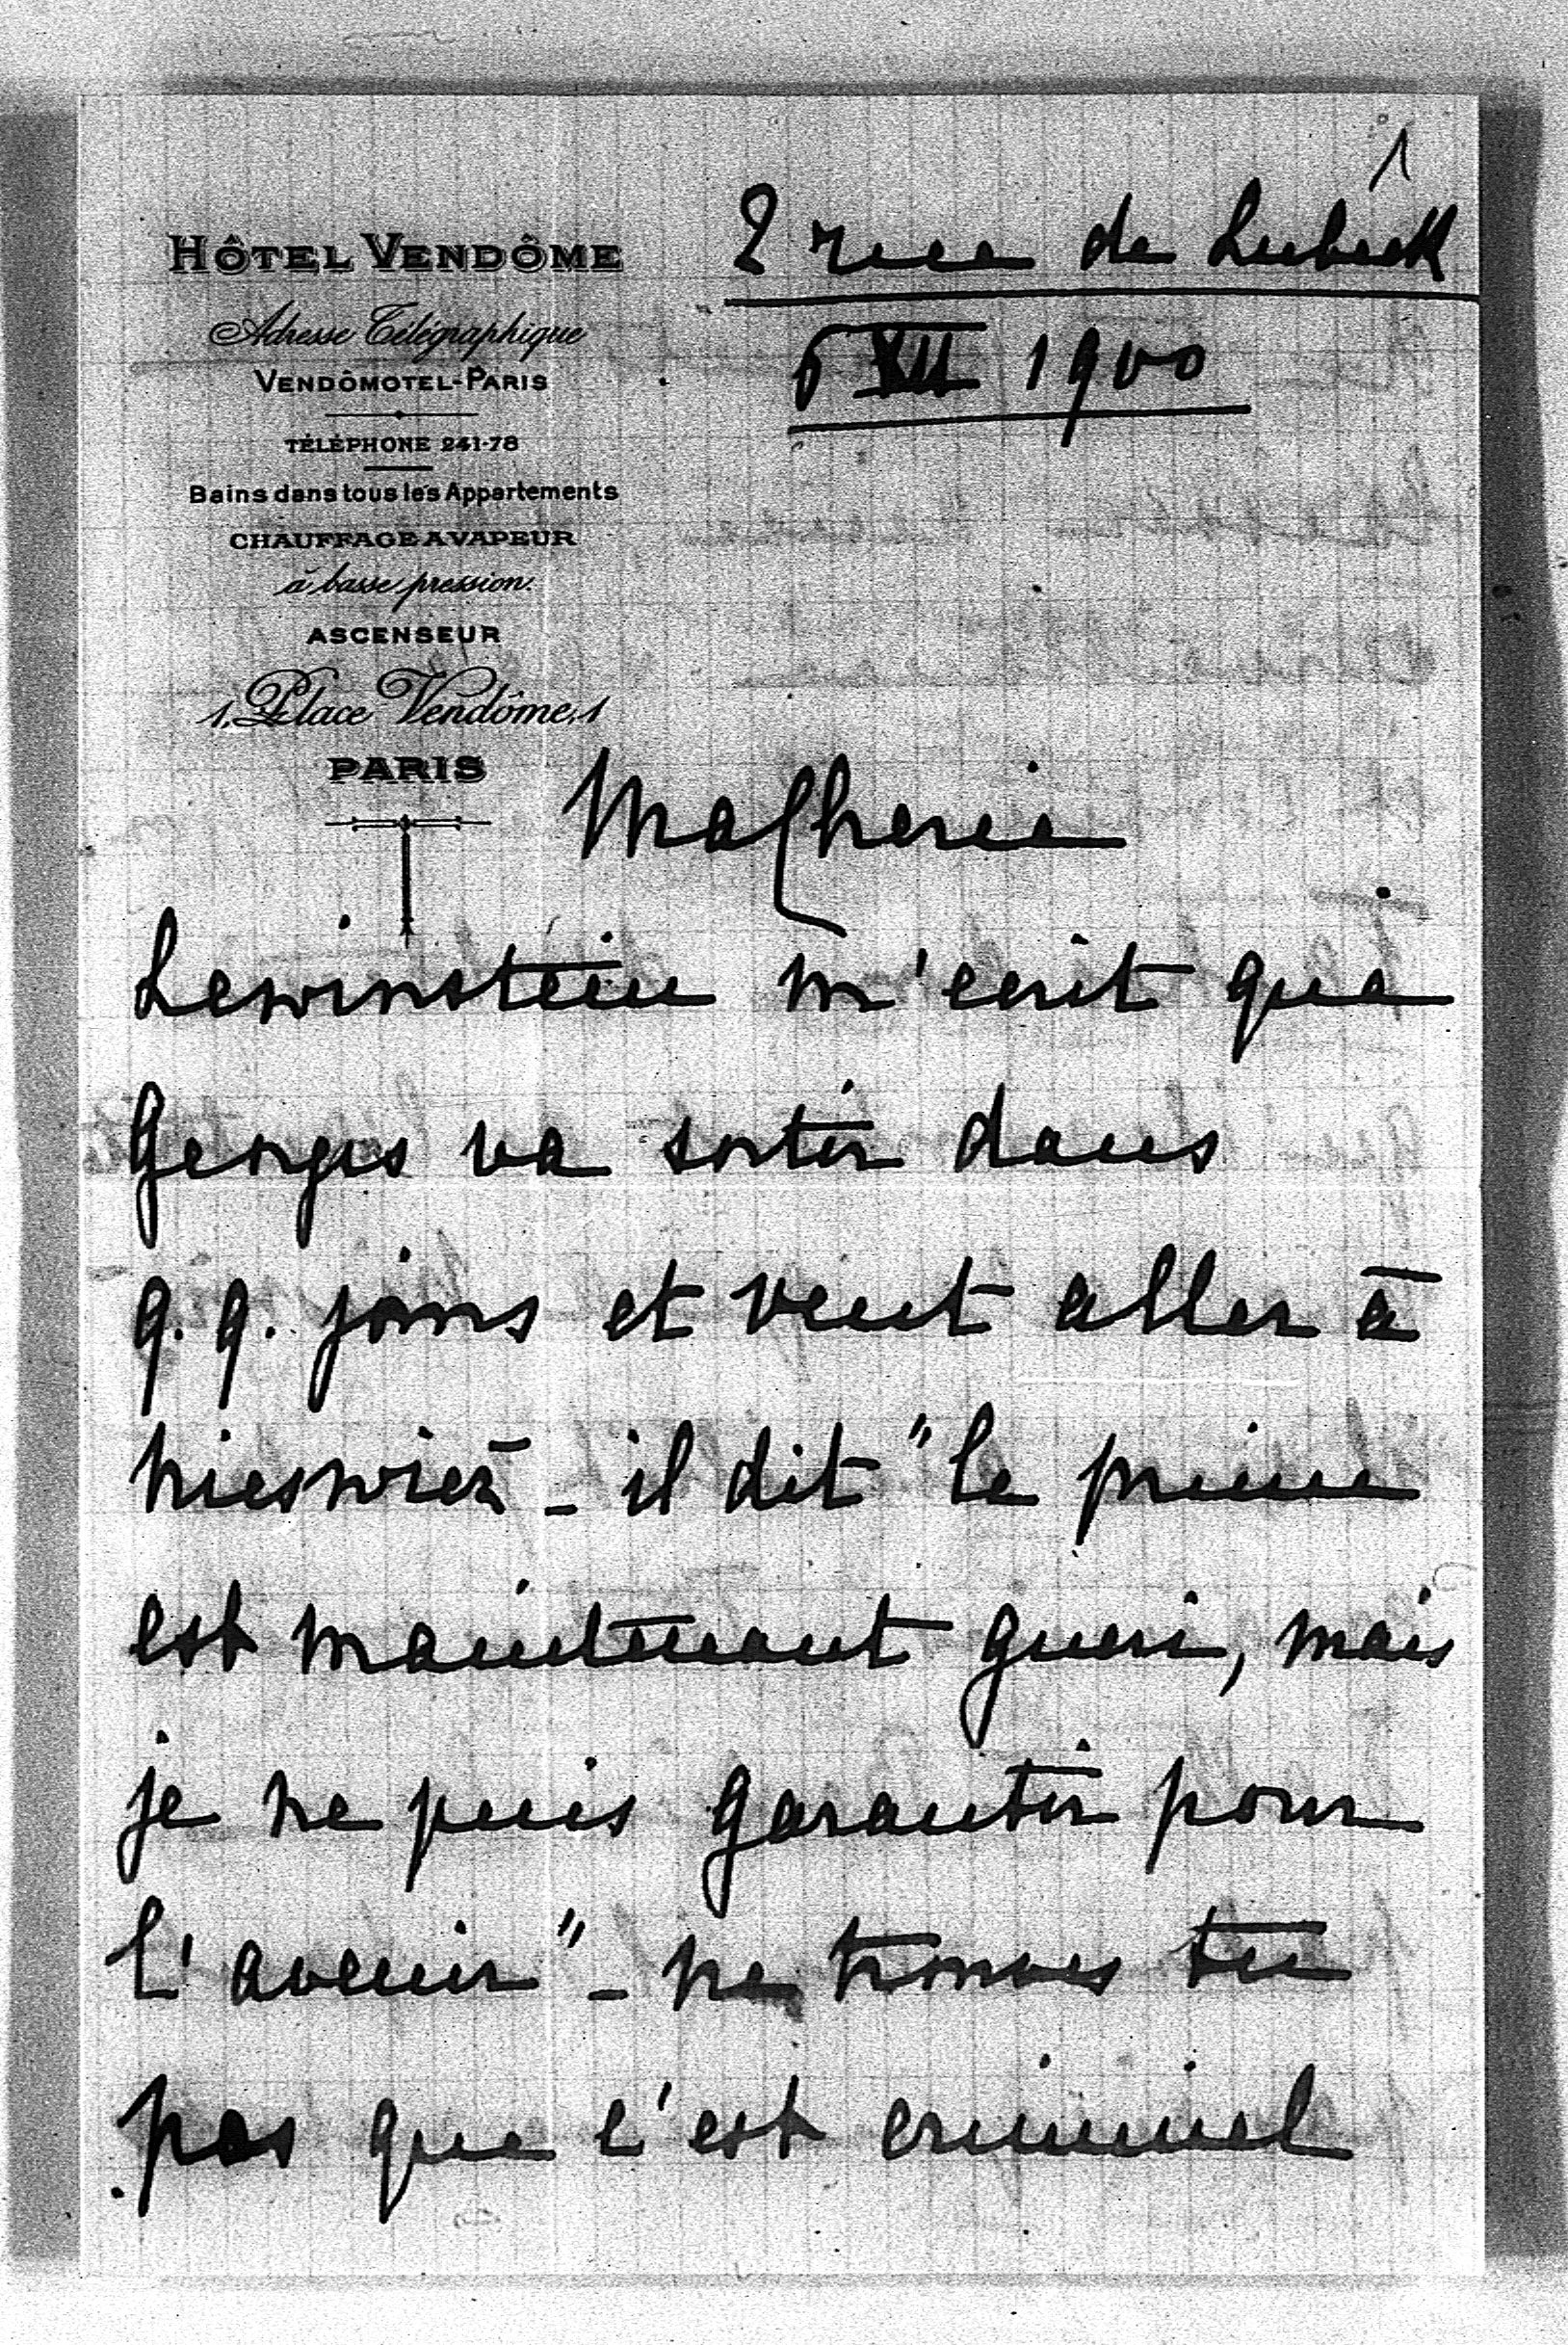 1
HÔTEL VENDÔME
Adresse Télégraphique
VENDÔMOTEL-PARIS
TÉLÉPHONE 241-78
Bains dans tous les Appartements
CHAUFFAGE A VAPEUR
à basse pression.
ASCENSEUR
1, Place Vendôme, 1
PARIS
2 rue de Lubeck
6 XII 1900
Ma Cherie
Lewinstein m'ecrit que
Georges va sortir dans
q. q. jours et veut aller à
Nieswiez - il dit "le prince
est maintenant gueri, mais
je ne puis garantir pour
l'avenir" - ne trouves tu
pas que c'est criminel